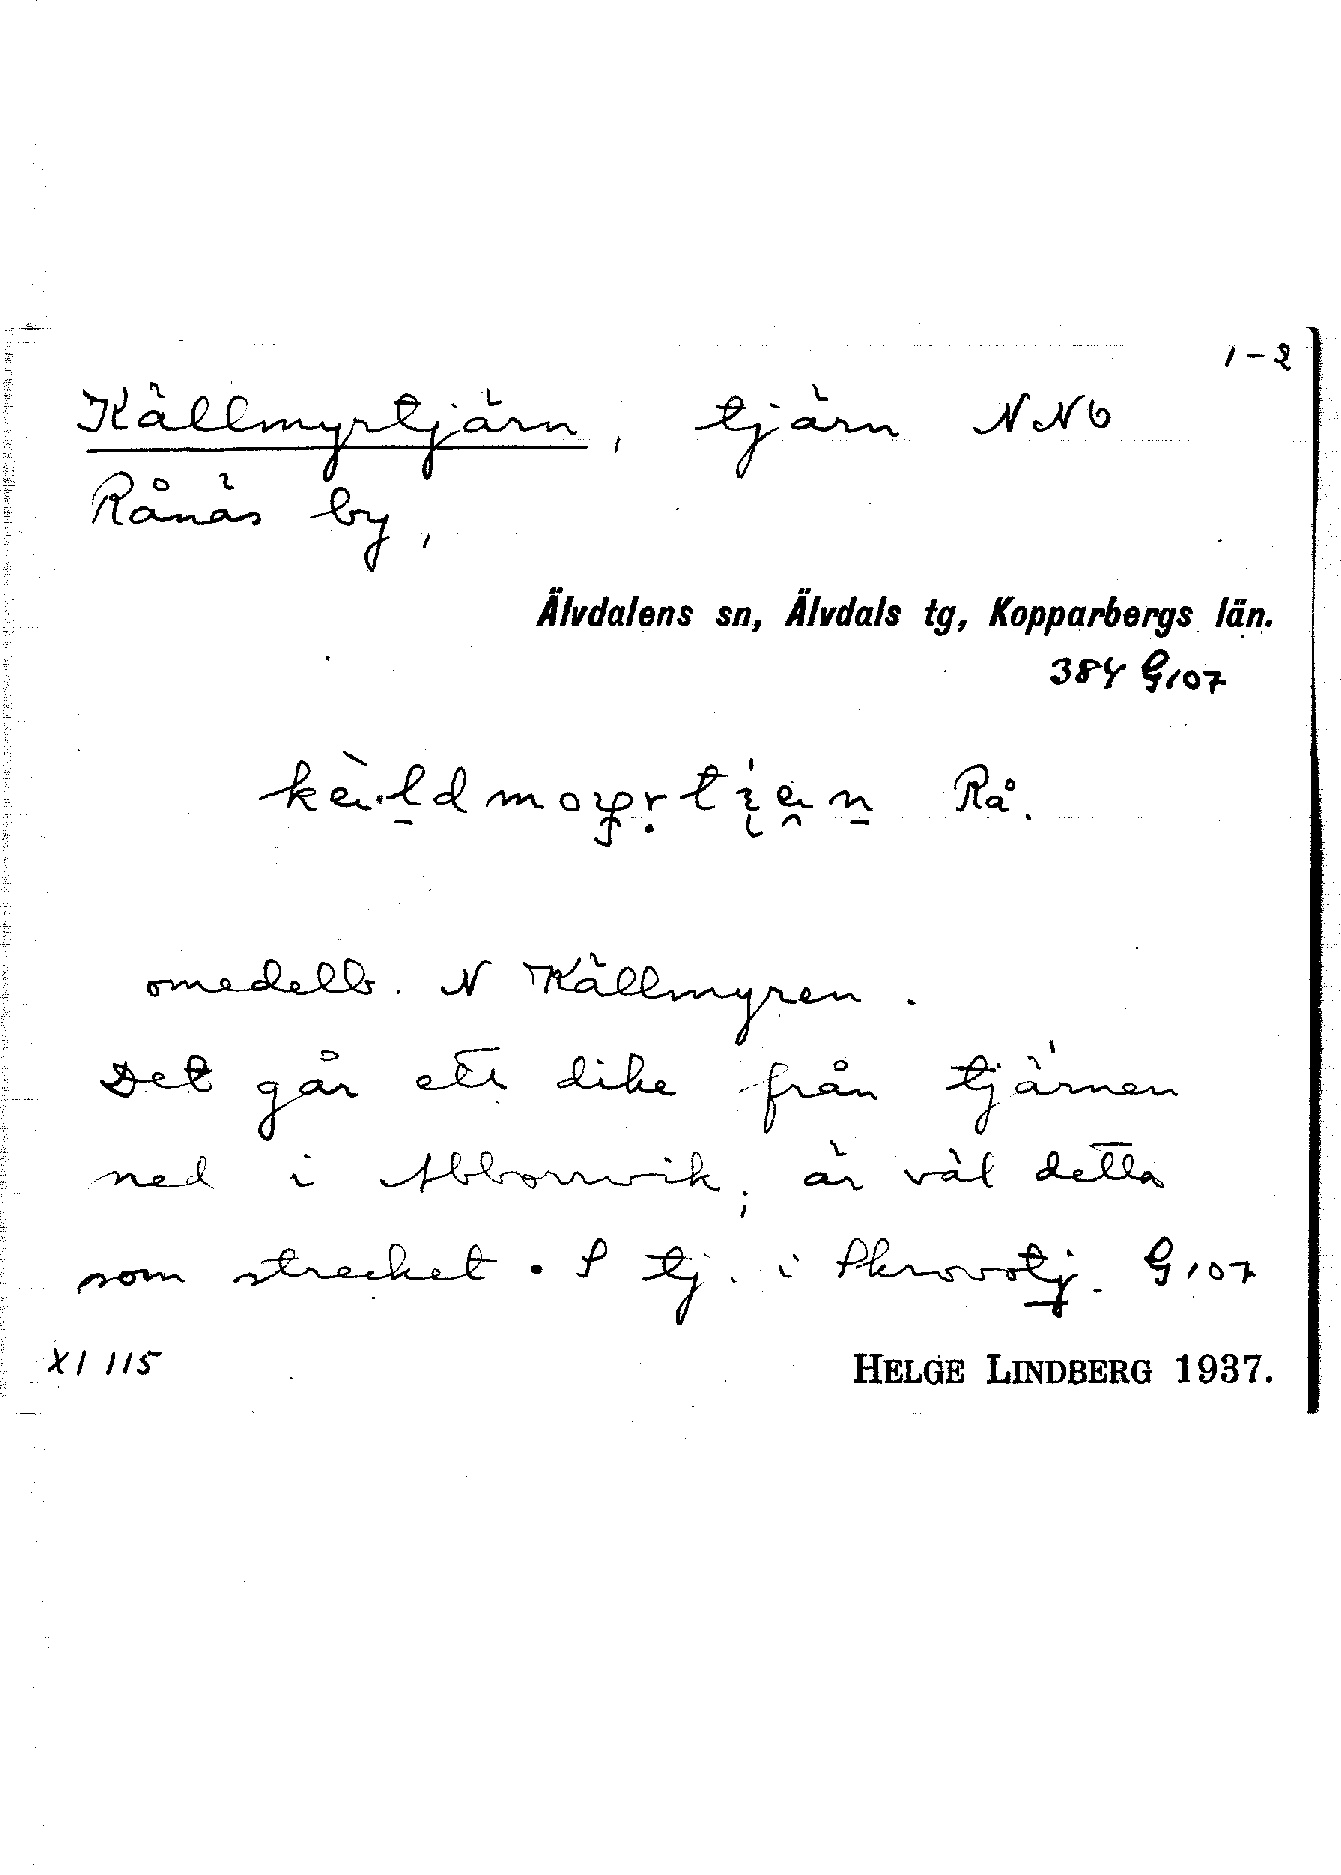 1-2
Källmyrtjärn, tjärn NNO
Rånäs by,
Älvdalens sn, Älvdals tg, Kopparbergs län.
384 G107
Rå.
omedelb. N Källmyren.
Det går ett dike från tjärnen
ned i Abborrvik; är väl detta
som strecket. S tj. i Skrovotj. G107
XI 115
HELGE LINDBERG 1937.